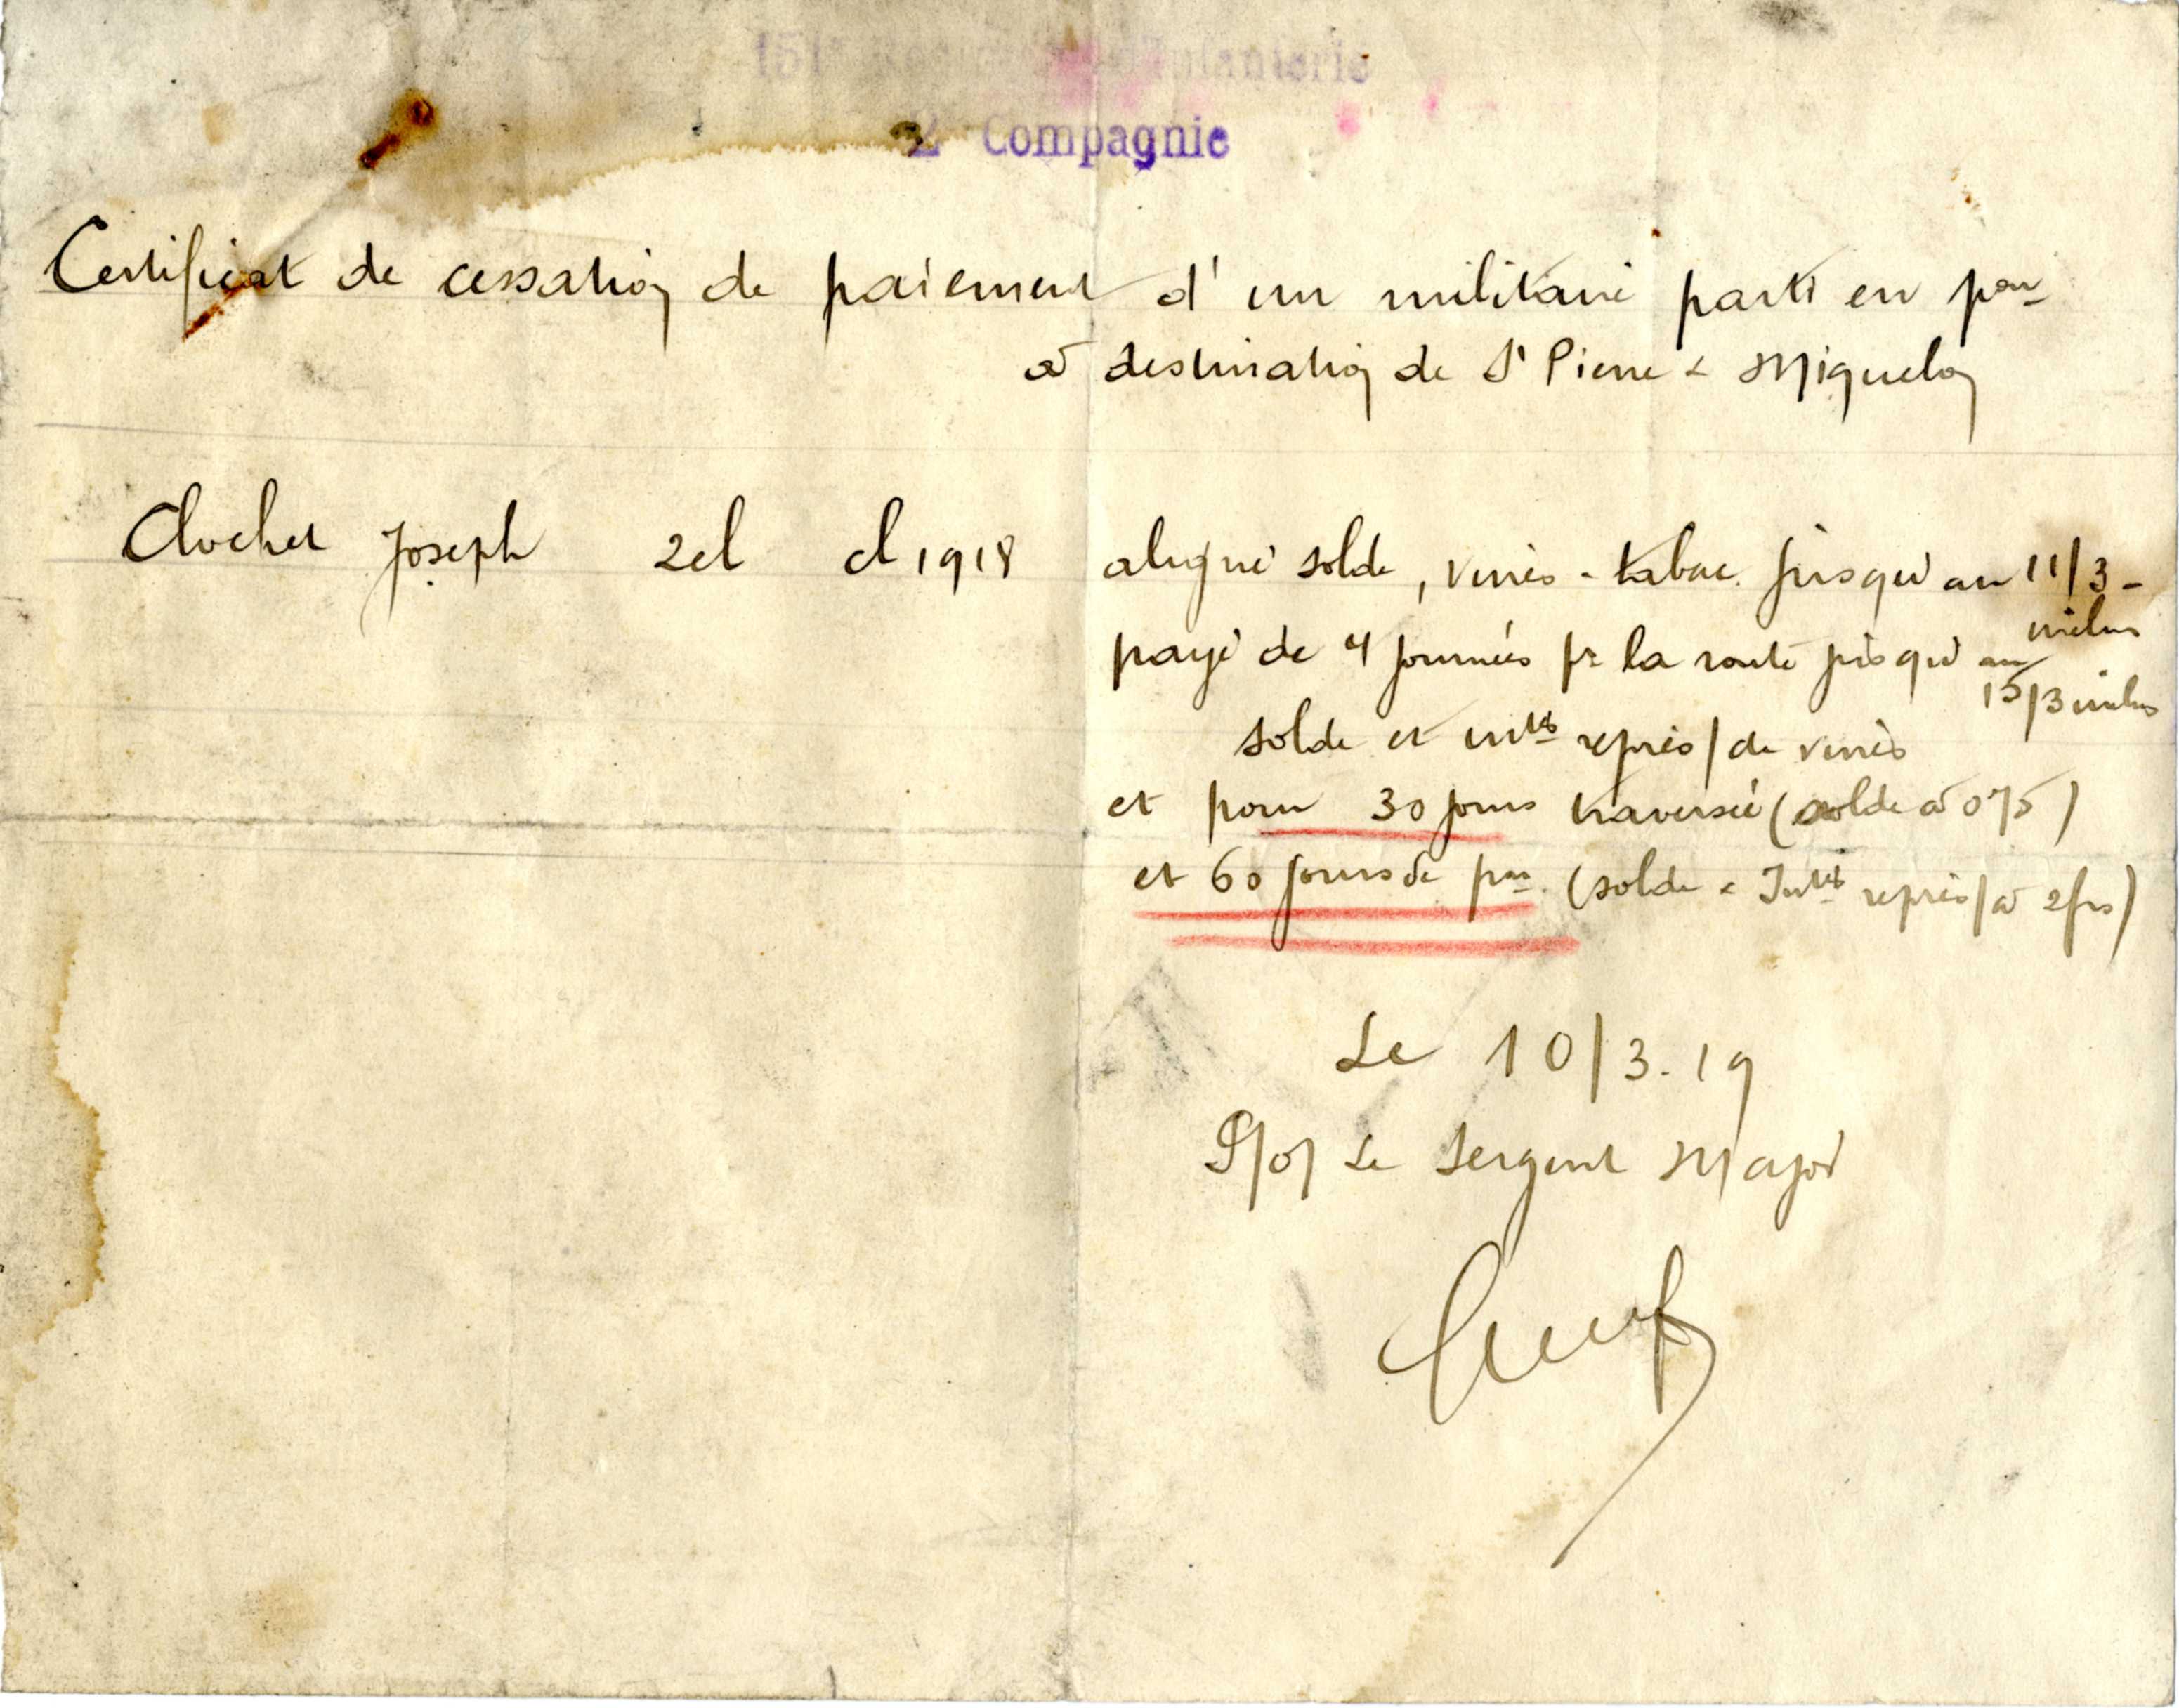 151 Infanterie
2 Compagnie
Certificat de cessation de paiement d'un militaire parti en pon
à destination de St Pierre & Miquelon
Clochet Joseph 2cl cl 1918 aligné solde, vivres - tabac jusqu'au 11/3 -
inclus
payé de 4 journées pr la route jusqu'au
15/3 inclus
solde et intés représ/ de vivres
et pour 30 jours traversée (solde à 075)
et 60 jours de pon (solde & Intés représ/ à 2frs)
Le 10/3.19
P/o/ Le Sergent Major